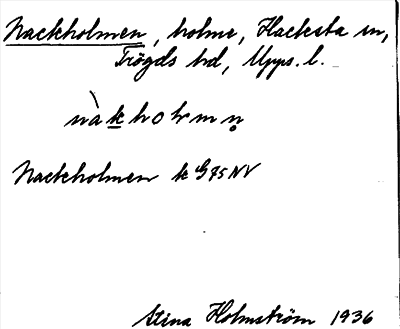 Nackholmen, holme, Hacksta sn,
Trögds hd, Upps. l.
nàkholmn̥
Nackholmen k G75NV
Stina Holmström 1936